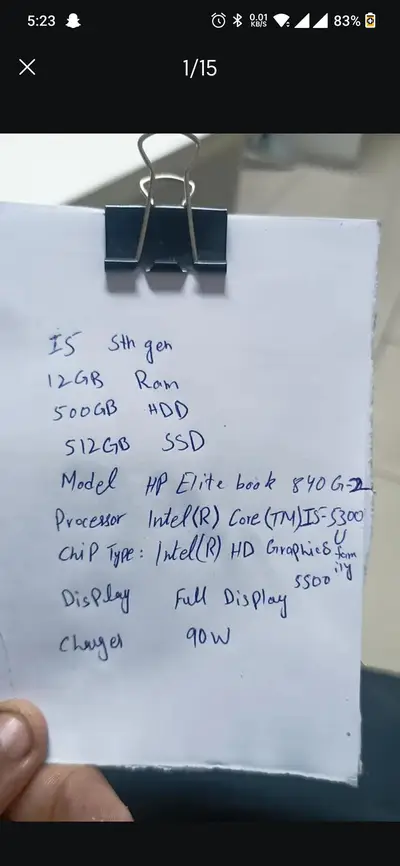 5:23
0.01 KB/S
83%
1/15
I5 5th gen
12GB Ram
500GB HDD
512GB SSD
Model HP Elite book 840 G-2
Processor Intel(R) Core(TM)I5-5300
U
Chip Type: Intel(R) HD Graphics family
5500
Display Full Display
Charger 90W